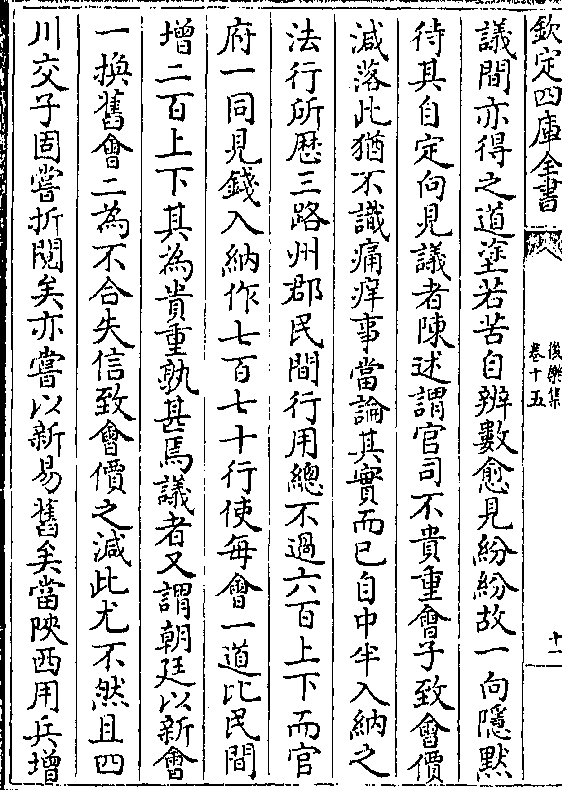 欽定四庫全書
後樂集
卷十五
十一
議間亦得之道塗若苦自辨數愈見紛紛故一向隱默
待其自定向見議者陳述謂官司不貴重會子致會價
減落此猶不識痛痒事當論其實而已自中半入納之
法行所歴三路州郡民間行用總不過六百上下而官
府一同見錢入納作七百七十行使每會一道比民間
增二百上下其為貴重孰甚焉議者又謂朝廷以新會
一換舊會二為不合失信致會價之減此尤不然且四
川交子固嘗折閱矣亦嘗以新易舊矣當陜西用兵增